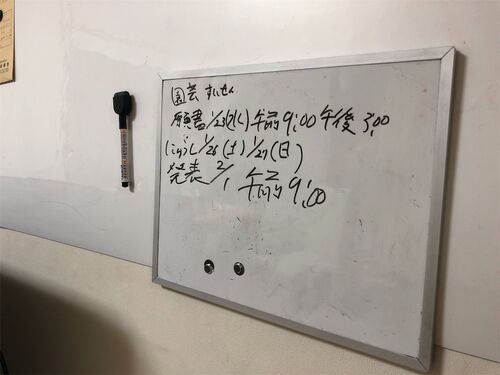 園芸 すいせん
願書 1/23(水) 午前9:00 午後3:00
1/26(土) 1/27(日)
発表 2/1 午前9:00